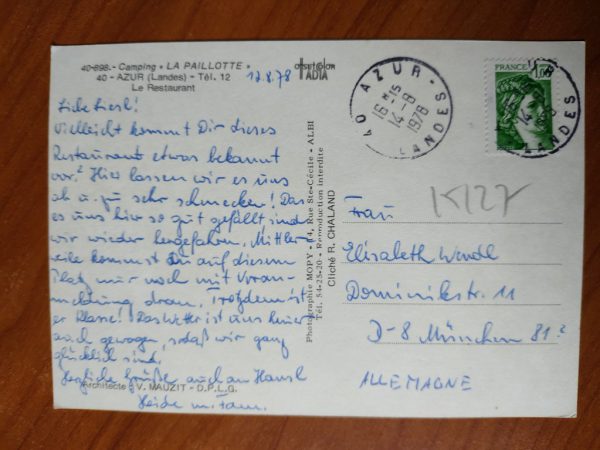 40-898.- Camping « LA PAILLOTTE »
40 - AZUR (Landes) - Tél. 12
Le Restaurant
offset color
TADIA
12.8.78
Liebe Liesl!
Vielleicht kommt Dir dieses
Restaurant etwas bekannt
vor? Hier lassen wir es uns
ab u. zu sehr schmecken! Da
es uns hier so gut gefällt sind
wir wieder hergefahren. Mittler-
weile kommst Du auf diesem
Platz nur noch mit Voran-
meldung dran, trotzdem ist
er Klasse! Das Wetter ist uns hier
auch gewogen, sodaß wir ganz
glücklich sind.
Herzliche Grüße, auch an Hansl
Heide m. Fam.
Architecte : V. MAUZIT - D.P.L.G.
Photographie MOPY - 14, Rue Ste-Cécile - ALBI
Tél. 54-25-20 - Reproduction interdite
Cliché R. CHALAND
40 AZUR - LANDES
16 H 15
14-8
1978
FRANCE
LANDES
K127
Frau
Elisabeth Wendl
Dominikstr. 11
D-8 München 81
ALLEMAGNE